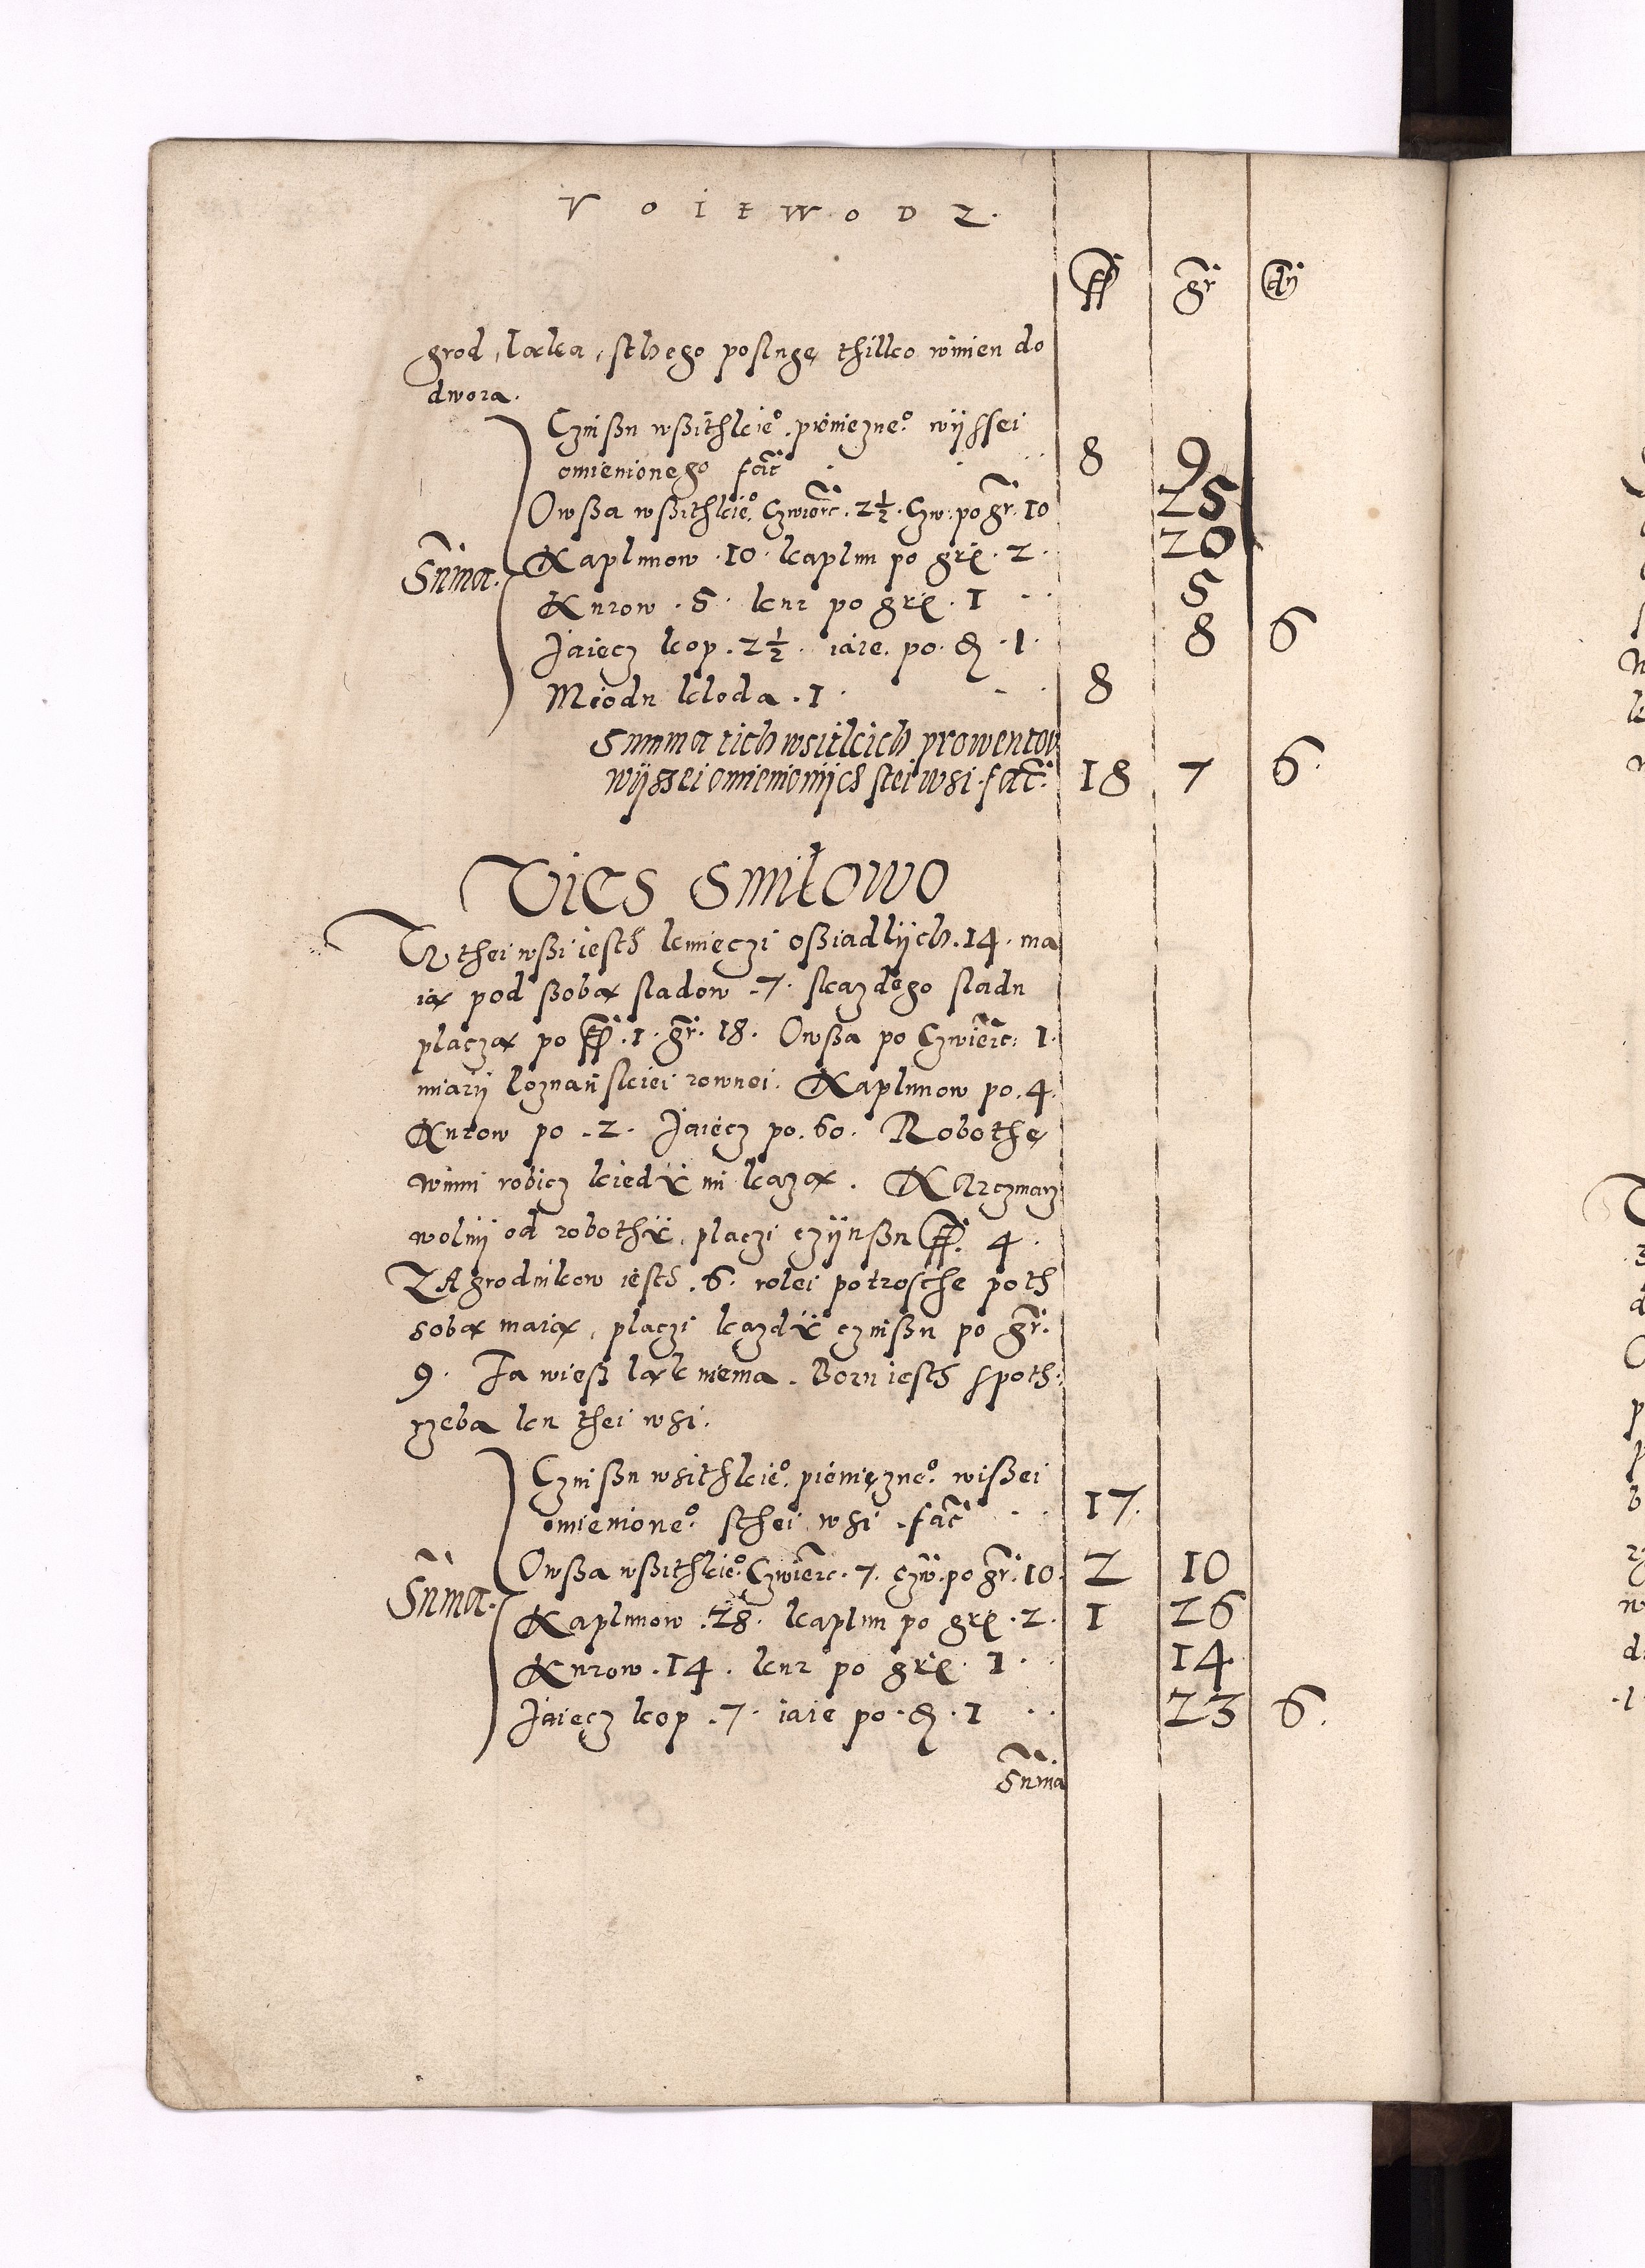 VOIEWODZ.
ff gr dn
grod, łąka, sthego posluge thilko winien do
dwora.
Czinßu wßithkie° pieniezne° wijssei
omienionego fac 8 9
Owßa wßithkie° Czwierc. 2½. Czw: po gr. 10 25
Kaplunow .10. kaplun po gr. 2. 20
Kurow .5. kur po gr. 1 5
Jaiecz kop. 2½. iaie. po. d .1. 8 6
Miodu kloda .1. 8
Summa.
Summa tich wsitkich prowentow
wijssei omienionijch stei wsi. fac. 18 7 6.
Vies Smiłowo
W thei wßi iesth kmieczi oßiadlijch .14. ma
ią pod ßobą sladow .7. skazdego sladu
placzą po ff .1. gr. 18. Owßa po Czwierc: 1.
miarij koznańskiei rownei. Kaplunow po .4.
Kurow po .2. Jaiecz po. 60. Robothe
winni robicz kiedÿ im kazą. KArczmarz
wolnij od robothÿ, placzi czijnßu ff. 4.
ZAgrodnikow iesth .6. rolei potrosche poth
sobą maią, placzi kazdÿ czinßu po gr.
9. Ta wieß łąk niema. Boru iesth spoth:
rzeba ku thei wsi.
Czinßu wsithkie° pieniężne° wißei
omienione° sthei wsi .fac 17.
Owßa wßithkie° Czwierc. 7. czw. po gr. 10. 2 10
Kaplunow .28. kaplun po gr. 2. 1 26
Kurow .14. kur po gr. 1. 14.
Jaiecz kop .7. iaie po. d .1 23 6.
Summa.
Summa